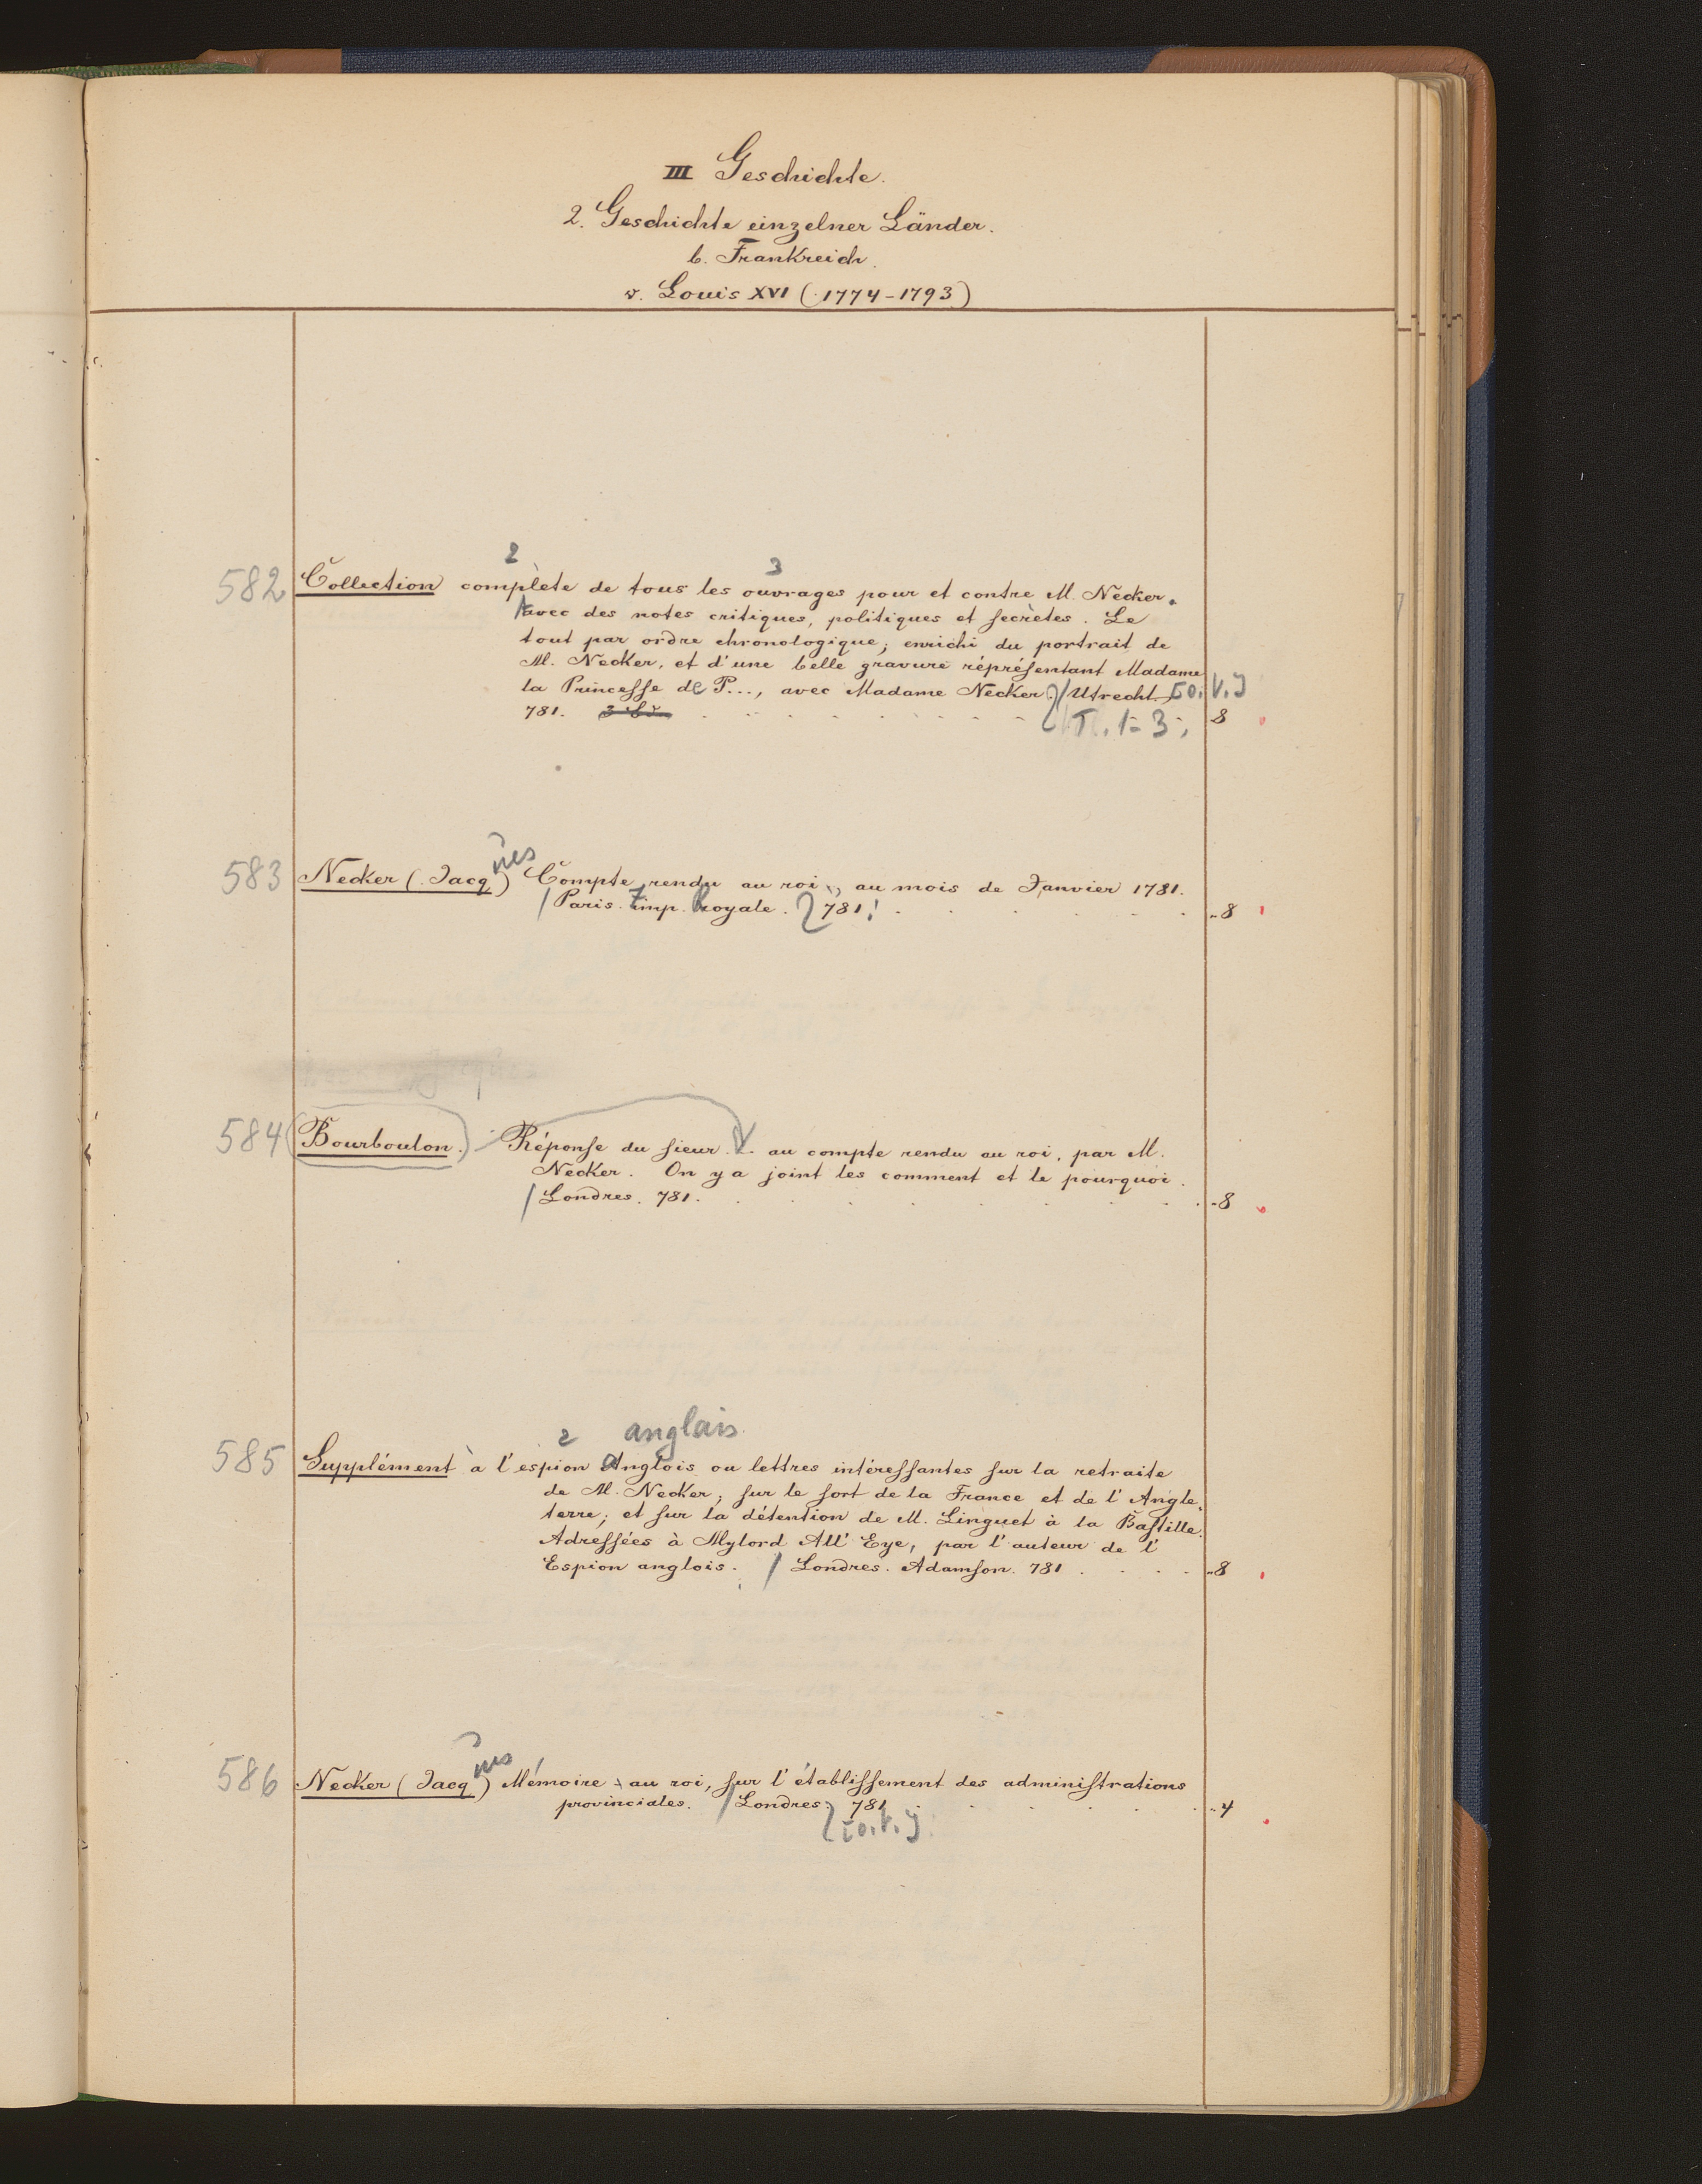 III Geschichte.
2. Geschichte einzelner Länder.
b. Frankreich.
v. Louis XVI (1774-1793)
2 3
582 Collection complète de tous les ouvrages pour et contre M. Necker.
avec des notes critiques, politiques et secrètes. Le
tout par ordre chronologique, enrichi du portrait de
M. Necker, et d'une belle gravure réprésentant Madame
la Princesse de P..., avec Madame Necker. / Utrecht [o. V.]
781. 3 bd. T. 1-3. 8
ues
583 Necker (Jacq) Compte rendu au roi, au mois de Janvier 1781.
/ Paris. Imp. Royale. 781. 8
584 (Bourboulon.) Réponse du sieur au compte rendu au roi, par M.
Necker. On y a joint les comment et le pourquoi.
/ Londres. 781. 8
2 anglais
585 Supplément à l'espion Anglois ou lettres intéressantes sur la retraite
de M. Necker; sur le sort de la France et de l'Angle-
terre; et sur la détention de M. Linguet à la Bastille.
Adressées à Mylord All' Eye, par l'auteur de l'
Espion anglois. / Londres. Adamson. 781 8
ues
586 Necker (Jacq) Mémoire au roi, sur l'établissement des administrations
provinciales. / Londres. 781 4
[o. V.]